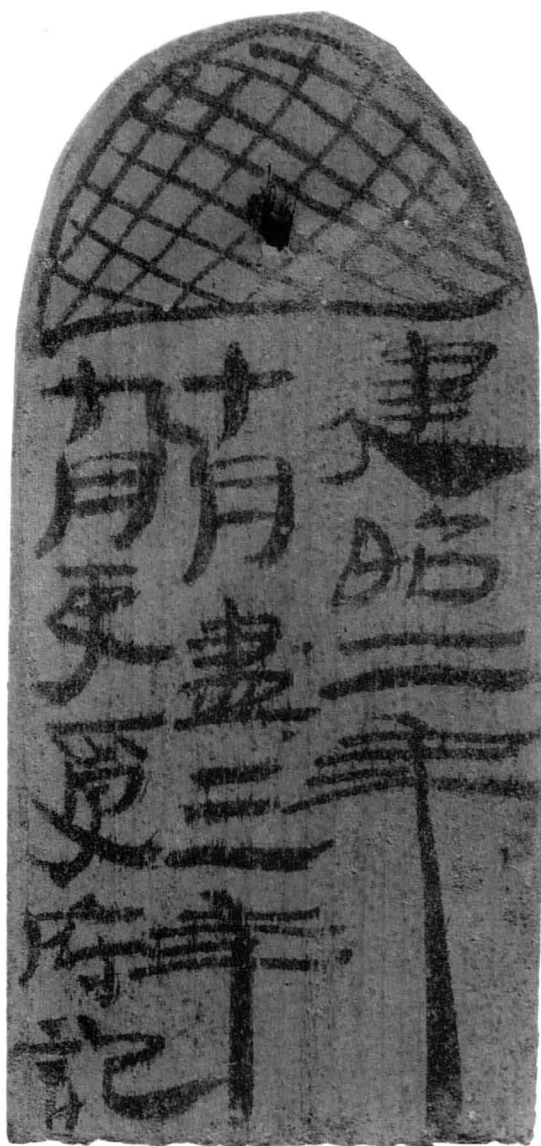 建昭二年
十月盡三年
九月吏受府記